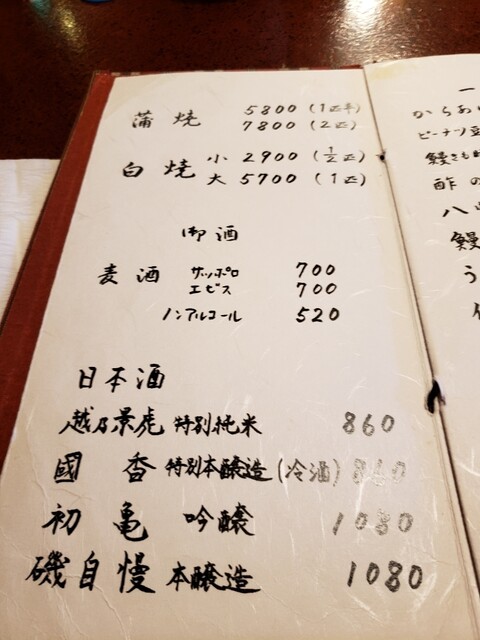 蒲焼 5800 (1匹半)
7800 (2匹)
白焼 小 2900 (½匹)
大 5700 (1匹)
御酒
麦酒 サッポロ 700
エビス 700
ノンアルコール 520
日本酒
越乃景虎 特別純米 860
國香 特別本醸造 (冷酒) 860
初亀 吟醸 1080
磯自慢 本醸造 1080
一
からあ
ピーナツ豆
鰻きも
酢の
八
鰻
う